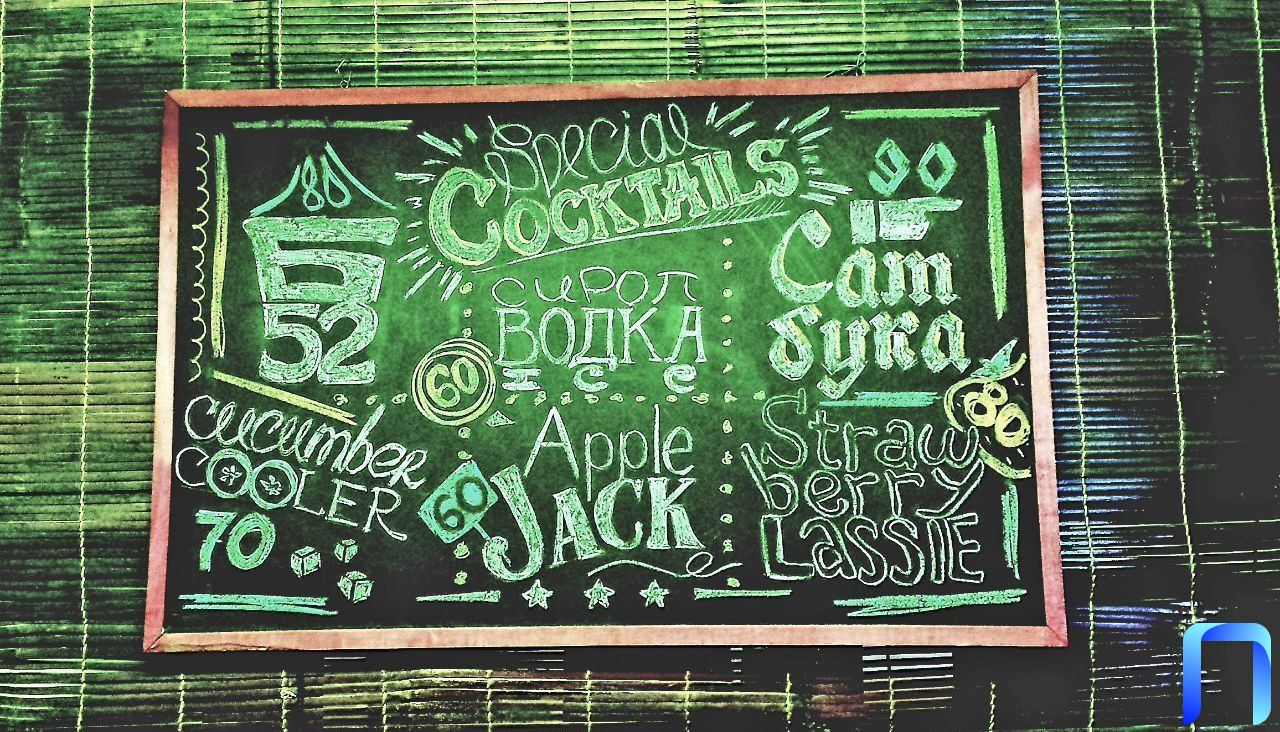 Special
COCKTAILS
80
Б
52
сироп
ВОДКА
ICE
60
90
Сам
бука
cucumber
COOLER
70
Apple
JACK
60
Straw
berry
LaSSIE
80